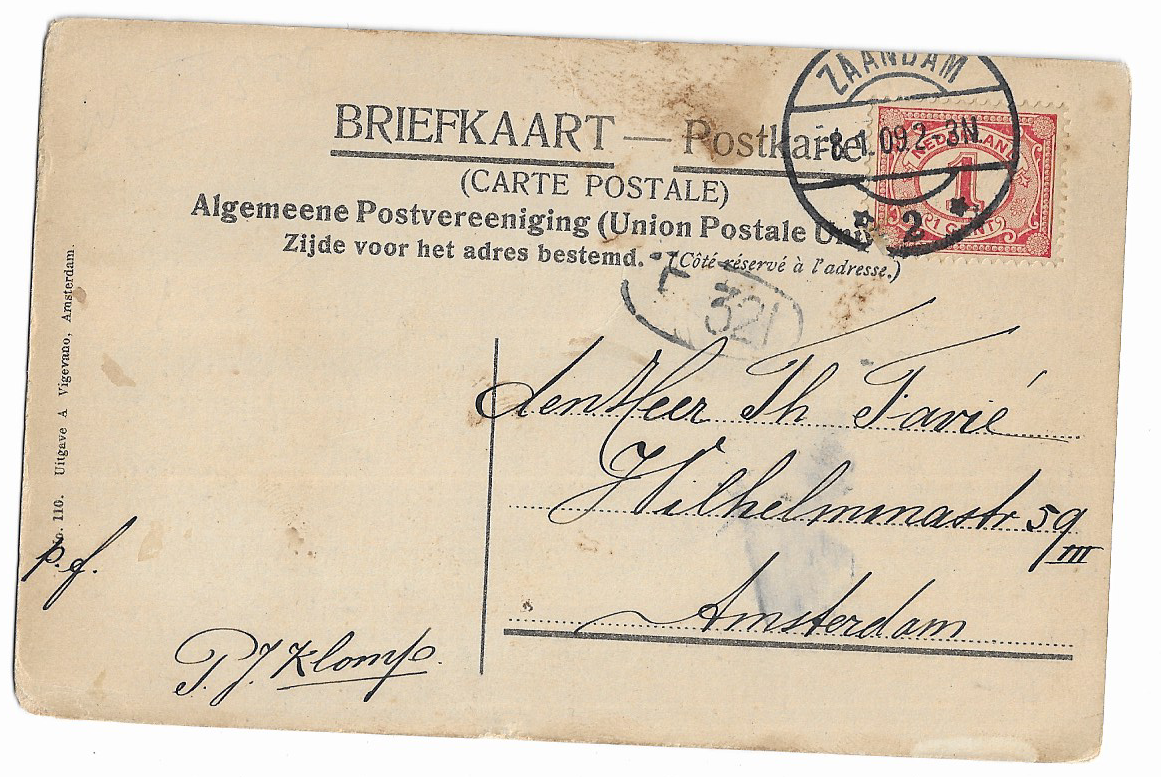 BRIEFKAART — Postkarte
(CARTE POSTALE)
Algemeene Postvereeniging (Union Postale Uni
Zijde voor het adres bestemd. - (Côté réservé à l'adresse.)
ZAANDAM
-8.1.09.2-3N
2
NEDERLAND
1
1 CENT
F
321
No. 110. Uitgave A Vigevano, Amsterdam.
den Heer Th Favié
Wilhelminastr 59
III
Amsterdam
p.f.
P.J. Klomp.